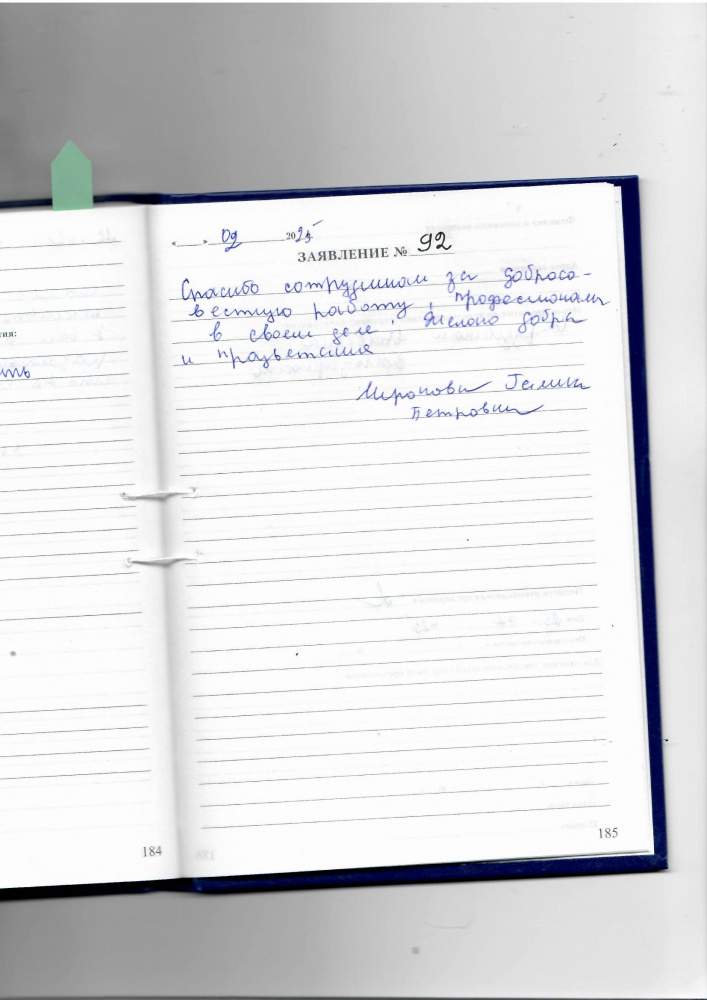 тия:
ть
184
« » 09 2025
ЗАЯВЛЕНИЕ № 92
Спасибо сотрудникам за добросо-
вестную работу, профессионалы
в своем деле. Желаю добра
и процветания
Миронова Галина
Петровна
185